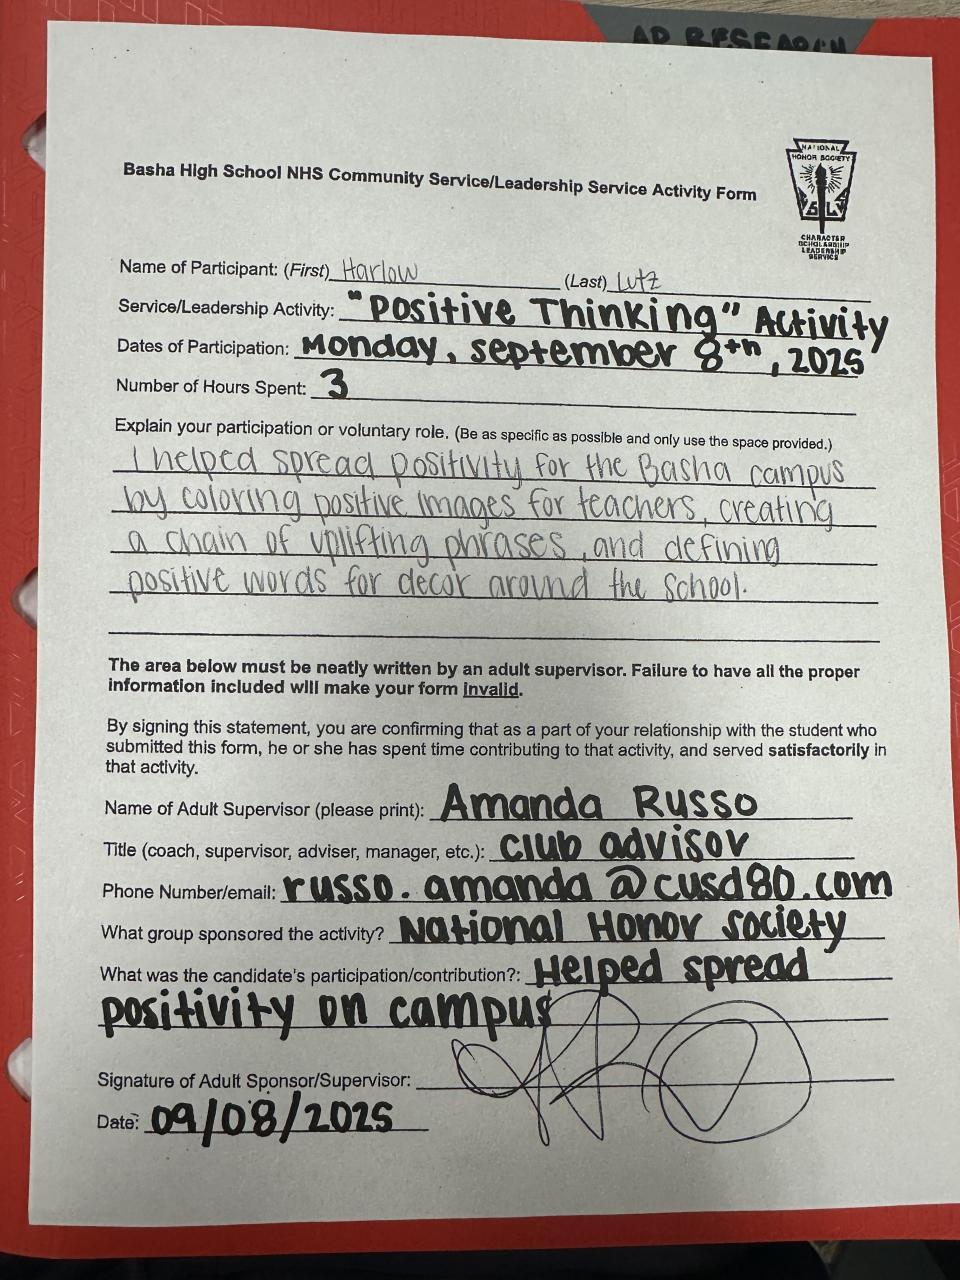 AP RESEARCH
NATIONAL
HONOR SOCIETY
CHARACTER
SCHOLARSHIP
LEADERSHIP
SERVICE
Basha High School NHS Community Service/Leadership Service Activity Form
Name of Participant: (First) Harlow (Last) Lutz
Service/Leadership Activity: "Positive Thinking" Activity
Dates of Participation: Monday, september 8th, 2025
Number of Hours Spent: 3
Explain your participation or voluntary role. (Be as specific as possible and only use the space provided.)
I helped spread positivity for the Basha campus
by coloring positive images for teachers, creating
a chain of uplifting phrases, and defining
positive words for decor around the school.
The area below must be neatly written by an adult supervisor. Failure to have all the proper
information included will make your form invalid.
By signing this statement, you are confirming that as a part of your relationship with the student who
submitted this form, he or she has spent time contributing to that activity, and served satisfactorily in
that activity.
Name of Adult Supervisor (please print): Amanda Russo
Title (coach, supervisor, adviser, manager, etc.): club advisor
Phone Number/email: russo.amanda@cusd80.com
What group sponsored the activity? National Honor Society
What was the candidate's participation/contribution?: Helped spread
positivity on campus
Signature of Adult Sponsor/Supervisor:
Date: 09/08/2025